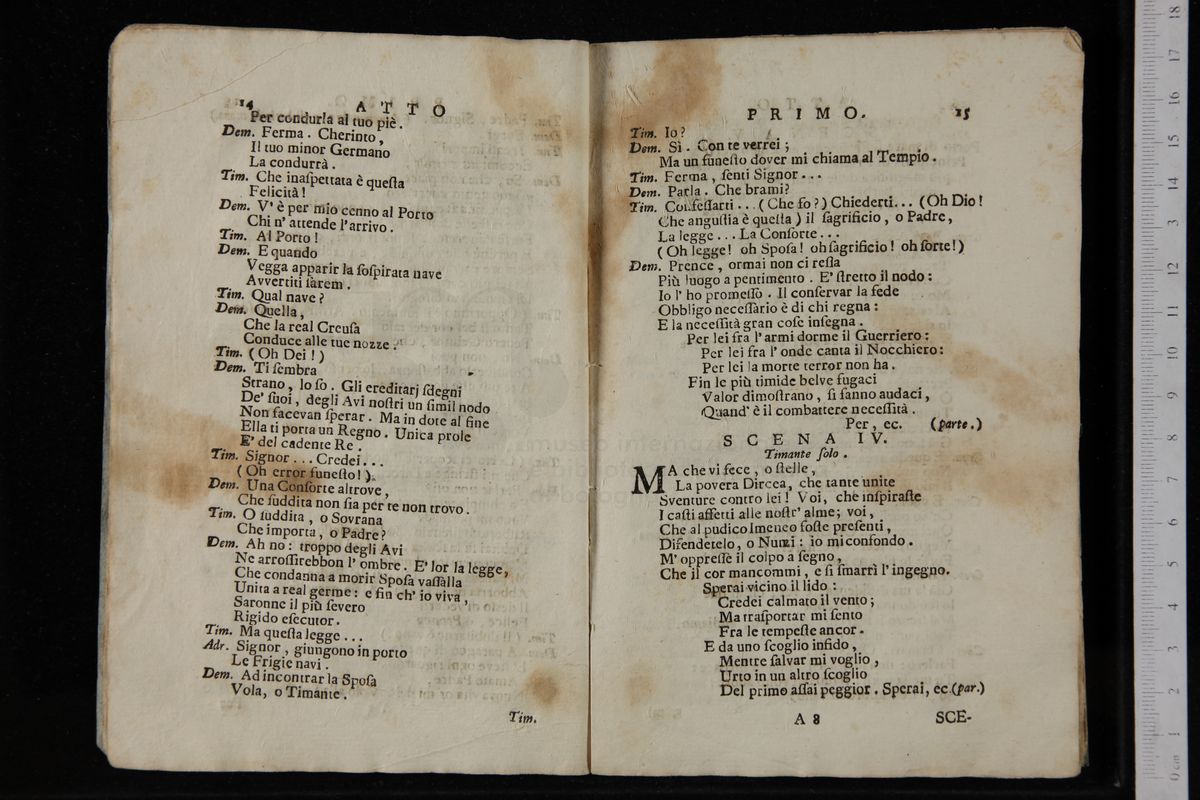 14 ATTO
Per condurla al tuo piè.
Dem. Ferma. Cherinto,
Il tuo minor Germano
La condurrà.
Tim. Che inaſpettata è queſta
Felicità!
Dem. V' è per mio cenno al Porto
Chi n' attende l'arrivo.
Tim. Al Porto!
Dem. E quando
Vegga apparir la ſoſpirata nave
Avvertiti ſarem.
Tim. Qual nave?
Dem. Quella,
Che la real Creuſa
Conduce alle tue nozze.
Tim. (Oh Dei!)
Dem. Ti ſembra
Strano, lo ſo. Gli ereditarj ſdegni
De' ſuoi, degli Avi noſtri un ſimil nodo
Non facevan ſperar. Ma in dote al fine
Ella ti porta un Regno. Unica prole
E' del cadente Re.
Tim. Signor... Credei...
(Oh error funeſto!)
Dem. Una Conſorte altrove,
Che ſuddita non ſia per te non trovo.
Tim. O ſuddita, o Sovrana
Che importa, o Padre?
Dem. Ah no: troppo degli Avi
Ne arroſſirebbon l' ombre. E' lor la legge,
Che condanna a morir Spoſa vaſſalla
Unita a real germe: e fin ch' io viva,
Saronne il più ſevero
Rigido eſecutor.
Tim. Ma queſta legge...
Adr. Signor, giungono in porto
Le Frigie navi.
Dem. Ad incontrar la Spoſa
Vola, o Timante.
Tim.
PRIMO. 15
Tim. Io?
Dem. Sì. Con te verrei;
Ma un funeſto dover mi chiama al Tempio.
Tim. Ferma, ſenti Signor...
Dem. Parla. Che brami?
Tim. Confeſſarti... (Che fo?) Chiederti... (Oh Dio!
Che anguſtia è queſta) il ſagrificio, o Padre,
La legge... La Conſorte...
(Oh legge! oh Spoſa! oh ſagrificio! oh ſorte!)
Dem. Prence, ormai non ci reſta
Più luogo a pentimento. E' ſtretto il nodo:
Io l' ho promeſſo. Il conſervar la fede
Obbligo neceſſario è di chi regna:
E la neceſſità gran coſe inſegna.
Per lei fra l' armi dorme il Guerriero:
Per lei fra l' onde canta il Nocchiero:
Per lei la morte terror non ha.
Fin le più timide belve fugaci
Valor dimoſtrano, ſi fanno audaci,
Quand' è il combattere neceſſità.
Per, ec. (parte.)
SCENA IV.
Timante ſolo.
MA che vi fece, o ſtelle,
La povera Dircea, che tante unite
Sventure contro lei! Voi, che inſpiraſte
I caſti affetti alle noſtr' alme; voi,
Che al pudico Imeneo foſte preſenti,
Difendetelo, o Numi: io mi confondo.
M' oppreſſe il colpo a ſegno,
Che il cor mancommi, e ſi ſmarrì l' ingegno.
Sperai vicino il lido:
Credei calmato il vento;
Ma traſportar mi ſento
Fra le tempeſte ancor.
E da uno ſcoglio infido,
Mentre ſalvar mi voglio,
Urto in un altro ſcoglio
Del primo aſſai peggior. Sperai, ec. (par.)
A 8 SCE-